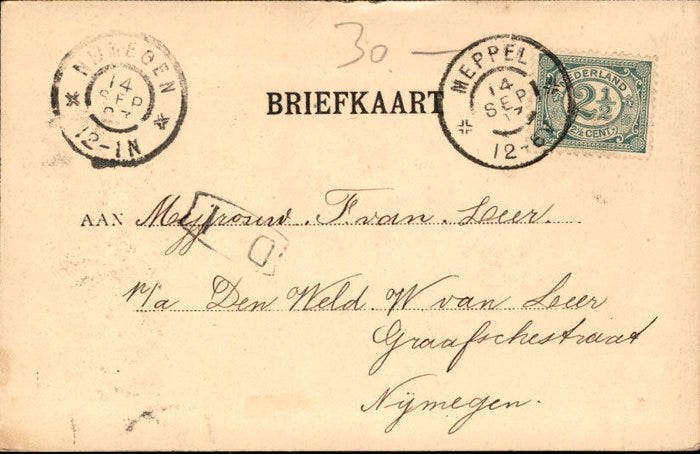 30.—
NIJMEGEN
14
SEP
12-1N
MEPPEL
14
SEP
12-6V
NEDERLAND
2½
2½ CENT
BRIEFKAART
AAN Mejjrouw. F. van. Leer.
D
p/a Den Weld. W van Leer
Graafschestraat
Nijmegen.